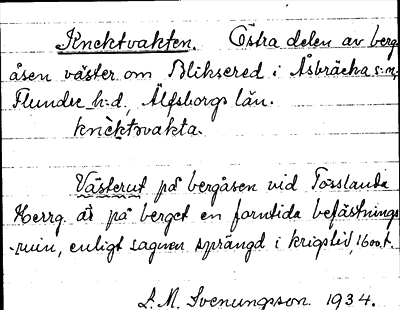 Knektvakten. Östra delen av berg
åsen väster om Bliksered i Åsbräcka s:n,
Flundre h:d, Älfsborgs län.
knèktvakta.
Västerut på bergåsen vid Tösslanda
Herrg. är på berget en forntida befästnings
-ruin, enligt sagner sprängd i krigstid, 1600.t.
L. M. Svenungson. 1934.